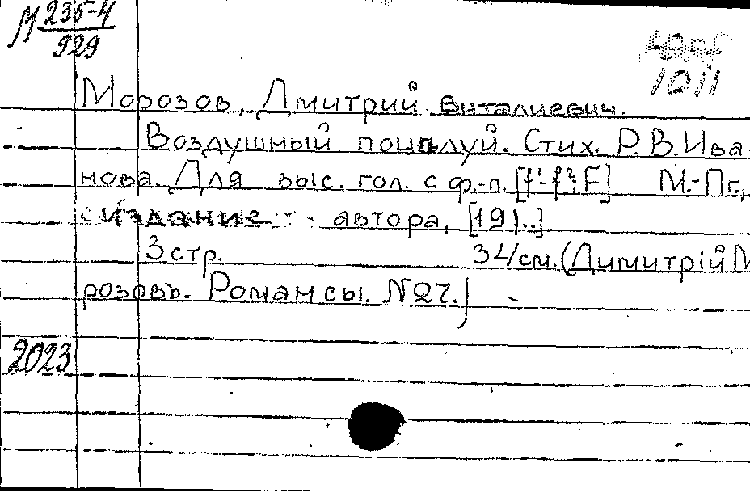 М 235-4
929
1011
Морозов, Дмитрий Виталиевич.
Воздушный поцелуй. Стих. Р.В.Ива
нова. Для выс. гол. с ф.-п. [f'-f²; F] М.-Пг.,
издание автора, [191..]
3 стр. 34 см. (Димитрій М
розовъ. Романсы. №27.)
2023